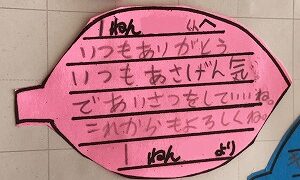 1ねん くんへ
いつもありがとう
いつもあさげん気
であいさつをしていいね。
これからもよろしくね。
1ねん より